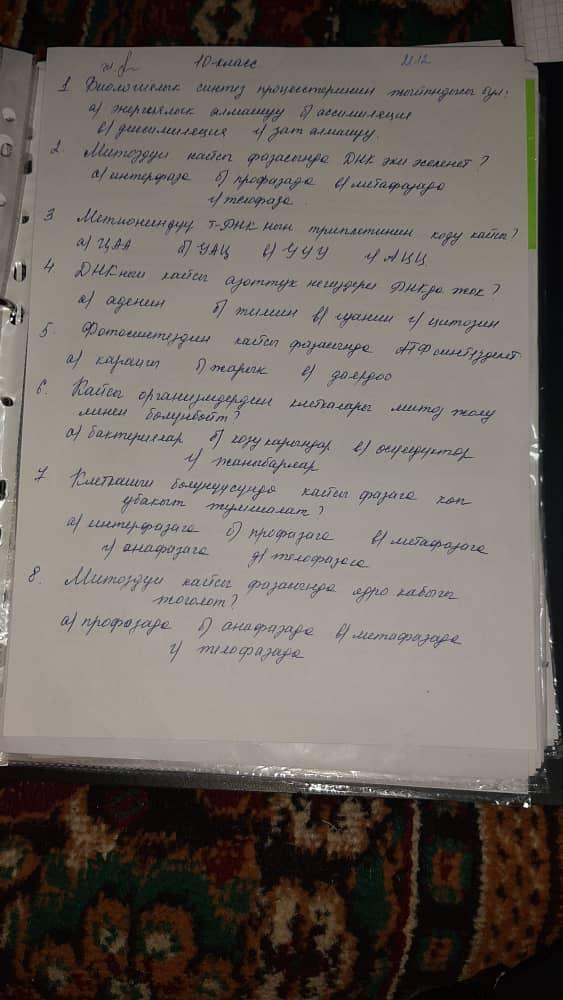 10-класс
1 Биологиялык синтез процесстеринин жыйындысы бул:
а) энергиялык алмашуу б) ассимиляция
в) диссимиляция г) зат алмашуу.
2. Митоздун кайсы фазасында ДНК эки эселенет?
а) интерфаза б) профазада в) метафазада
г) телофаза.
3 Метиониндуу т-РНК нын триплетинин коду кайсы?
а) ЦАА б) УАЦ в) УУУ г) АЦЦ
4. ДНКнын кайсы азоттук негиздери РНКда жок?
а) аденин б) тимин в) гуанин г) цитозин
5. Фотосинтездин кайсы фазасында АТФ синтезделет
а) карангы б) жарык в) даярдоо
6. Кайсы организмдердин клеткалары митоз жолу
менен болунбойт?
а) бактериялар б) козу карындар в) осумдуктор
г) жаныбарлар
7 Клетканын болунуусундо кайсы фазага коп
убакыт жумшалат?
а) интерфазага б) профазага в) метафазага
г) анафазага д) телофазага
8. Митоздун кайсы фазасында ядро кабыгы
жоголот?
а) профазада б) анафазада в) метафазада
г) телофазада